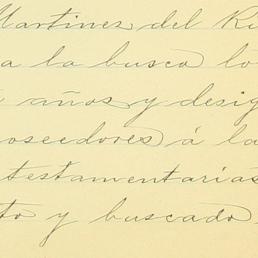 Martinez del R
a la busca lo
años y desig
oseedores á la
testamentarias
to y buscado.